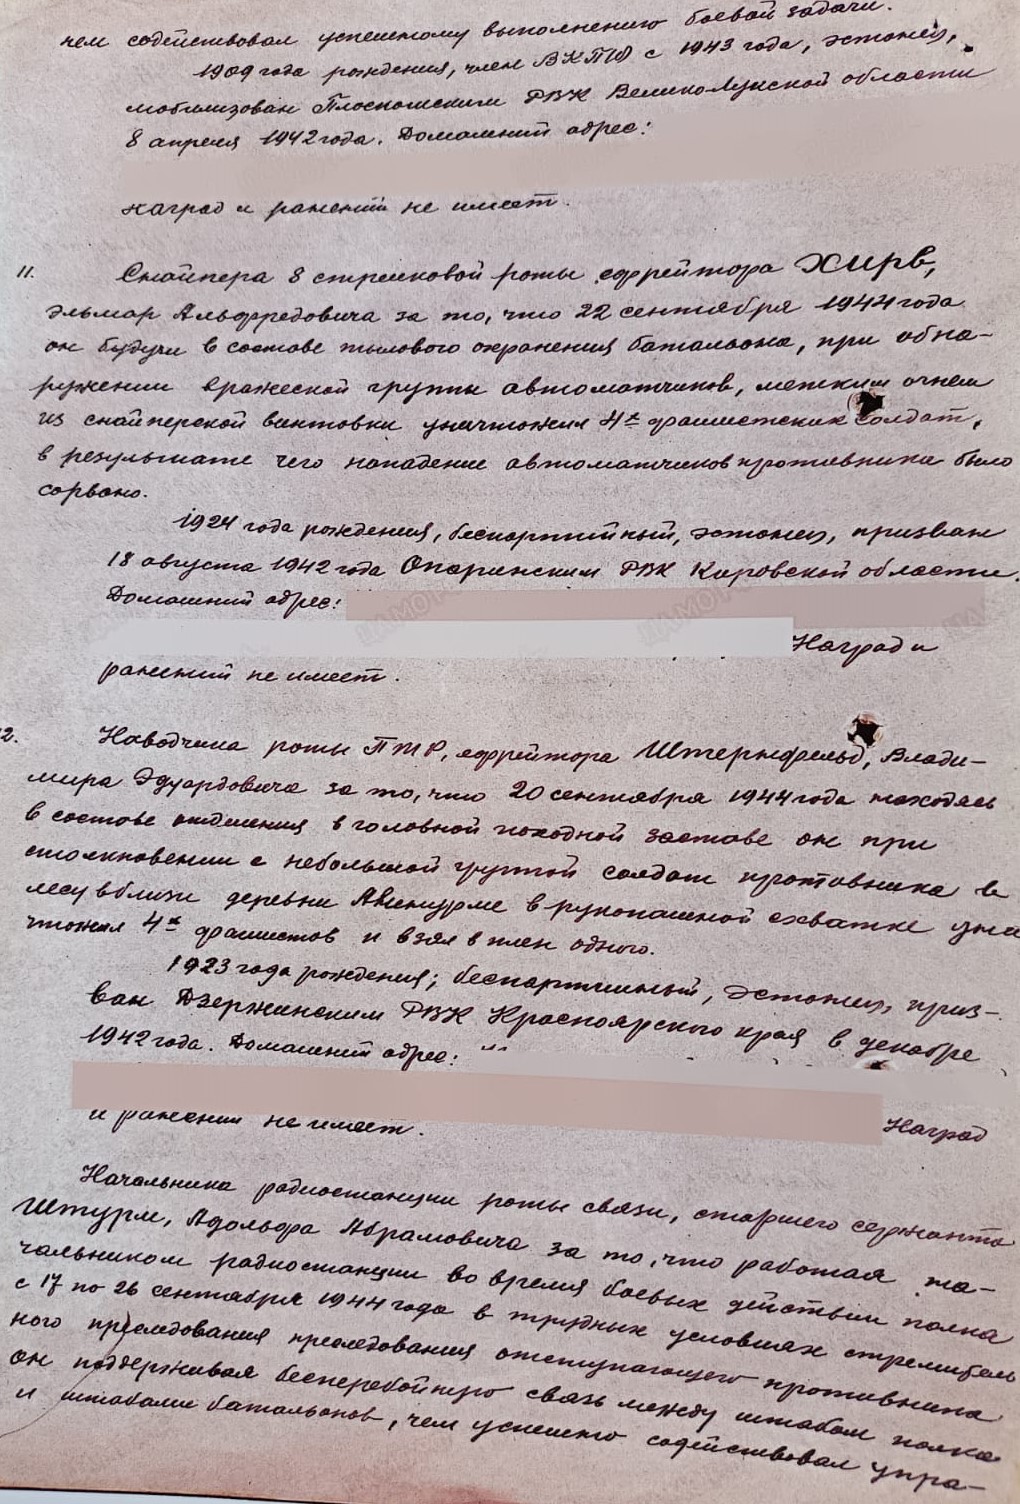 чем содействовал успешному выполнению боевой задачи.
1909 года рождения, член ВКП(б) с 1943 года, эстонец,
мобилизован Плоскошским РВК Великолукской области
8 апреля 1942 года. Домашний адрес:
наград и ранений не имеет.
11. Снайпера 8 стрелковой роты ефрейтора ХИРВ,
Эльмар Альфредовича за то, что 22 сентября 1944 года
он будучи в составе тылового охранения батальона, при обна-
ружении вражеской группы автоматчиков, метким огнем
из снайперской винтовки уничтожил 4х фашистских солдат,
в результате чего нападение автоматчиков противника было
сорвано.
1924 года рождения, беспартийный, эстонец, призван
18 августа 1942 года Опаринским РВК Кировской области.
Домашний адрес:
Наград и
ранений не имеет.
2. Наводчика роты ПТР, ефрейтора Штернфельд, Влади-
мира Эдуардовича за то, что 20 сентября 1944 года находясь
в составе отделения в головной походной заставе он при
столкновении с небольшой группой солдат противника в
лесу вблизи деревни Авинурме в рукопашной схватке уни
чтожил 4х фашистов и взял в плен одного.
1923 года рождения; беспартийный, эстонец, приз-
ван Дзержинским РВК Красноярского края в декабре
1942 года. Домашний адрес:
Наград
и ранений не имеет.
Начальника радиостанции роты связи, старшего сержанта
Штурм, Адольфа Абрамовича за то, что работая на-
чальником радиостанции во время боевых действий полка
с 17 по 26 сентября 1944 года в трудных условиях стремитель
ного преследования преследования отступающего противника
он поддерживал бесперебойную связь между штабом полка
и штабами батальонов, чем успешно содействовал упра-